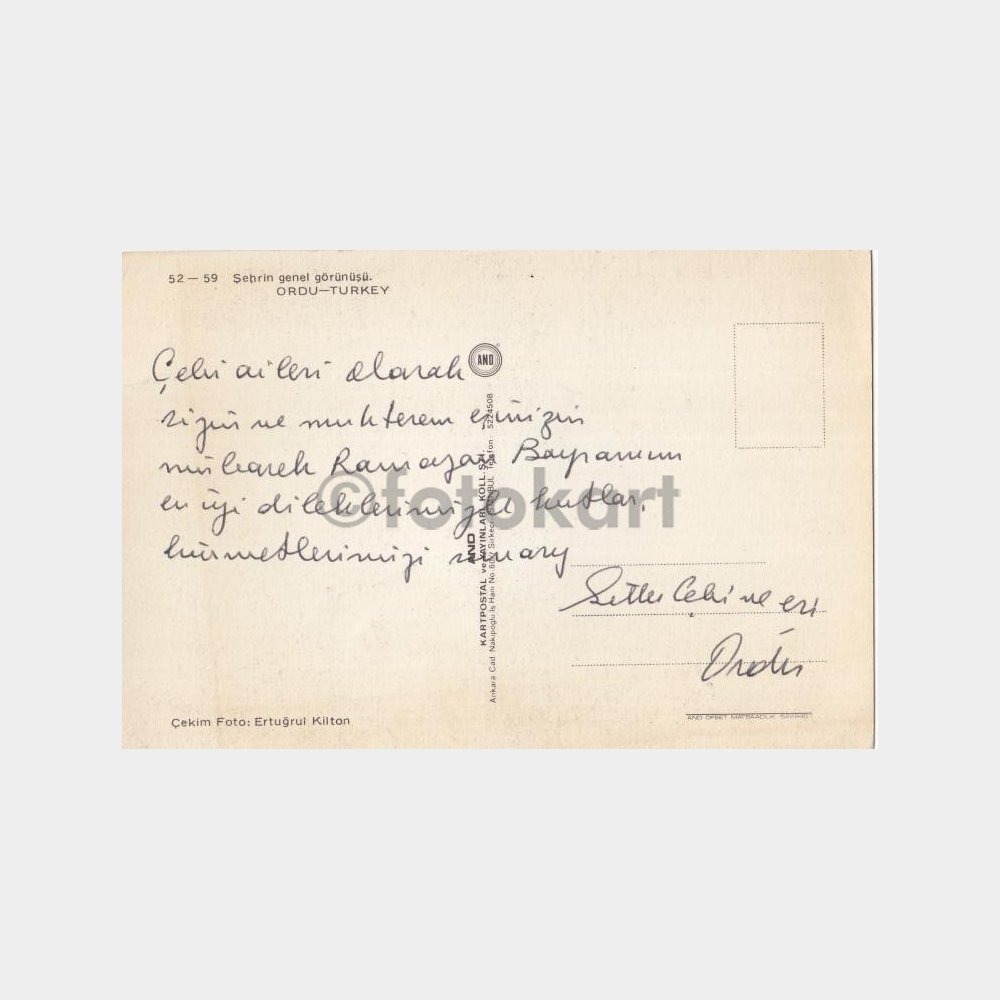 52 — 59 Şehrin genel görünüşü.
ORDU—TURKEY
AND
Çebi ailesi olarak
sizin ve muhterem eşinizin
mübarek Ramazan Bayramını
en iyi dileklerimizle kutlar,
hürmetlerimizi sunarız
©fotokart
Çebi ve eşi
Ordu
AND
KARTPOSTAL ve YAYINLARI KOLL. ŞTİ.
Ankara Cad. Nakipoğlu İş Hanı No. Sirkeci İSTANBUL Telefon: 5224508
Çekim Foto: Ertuğrul Kilton
AND OFSET MATBAACILIK